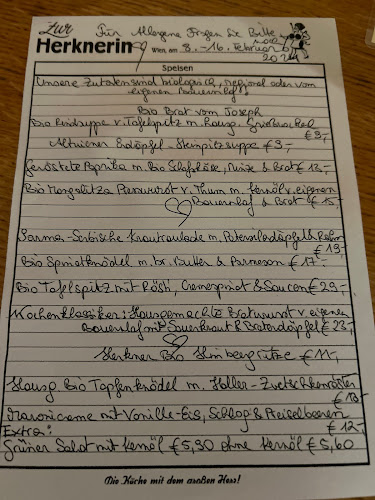 Zur Für Allergene Fragen Sie Bitte
Herknerin Wien, am 8.-16. Februar
Speisen
Unsere Zutaten sind biologisch, regional oder vom
eigenen Bauernhof!
Bio Brot vom Joseph
Bio Rindsuppe v. Tafelspitz m. Hausg. Griesnockerl
€ 9,-
Altwiener Erdäpfel-Steinpilzsuppe € 9,-
Geröstete Paprika m. Bio Schafskäse, Minze & Brot € 13,-
Bio Mangalitza Presswurst v. Thum m. Kernöl v. eigenen
Bauernhof & Brot € 15,-
Sarma-Serbische Krautroulade m. Petersilerdäpfel & Rahm
€ 19,-
Bio Spinatknödel m. br. Butter & Parmesan € 17.-
Bio Tafelspitz mit Rösti, Cremespinat & Saucen € 29,-
Küchenklassiker: Hausgemachte Bratwurst v. eigenen
Bauernhof mit Sauerkraut & Braterdäpfel € 23,-
Herkner Bio Himbeergrütze € 11,-
Hausg. Bio Topfenknödel m. Holler-Zwetschkenröster
€ 13-
Maronicreme mit Vanille-Eis, Schlag & Preiselbeeren
Extra: € 12,-
Grüner Salat mit Kernöl € 5,90 ohne Kernöl € 5,60
Die Küche mit dem großen Herz!